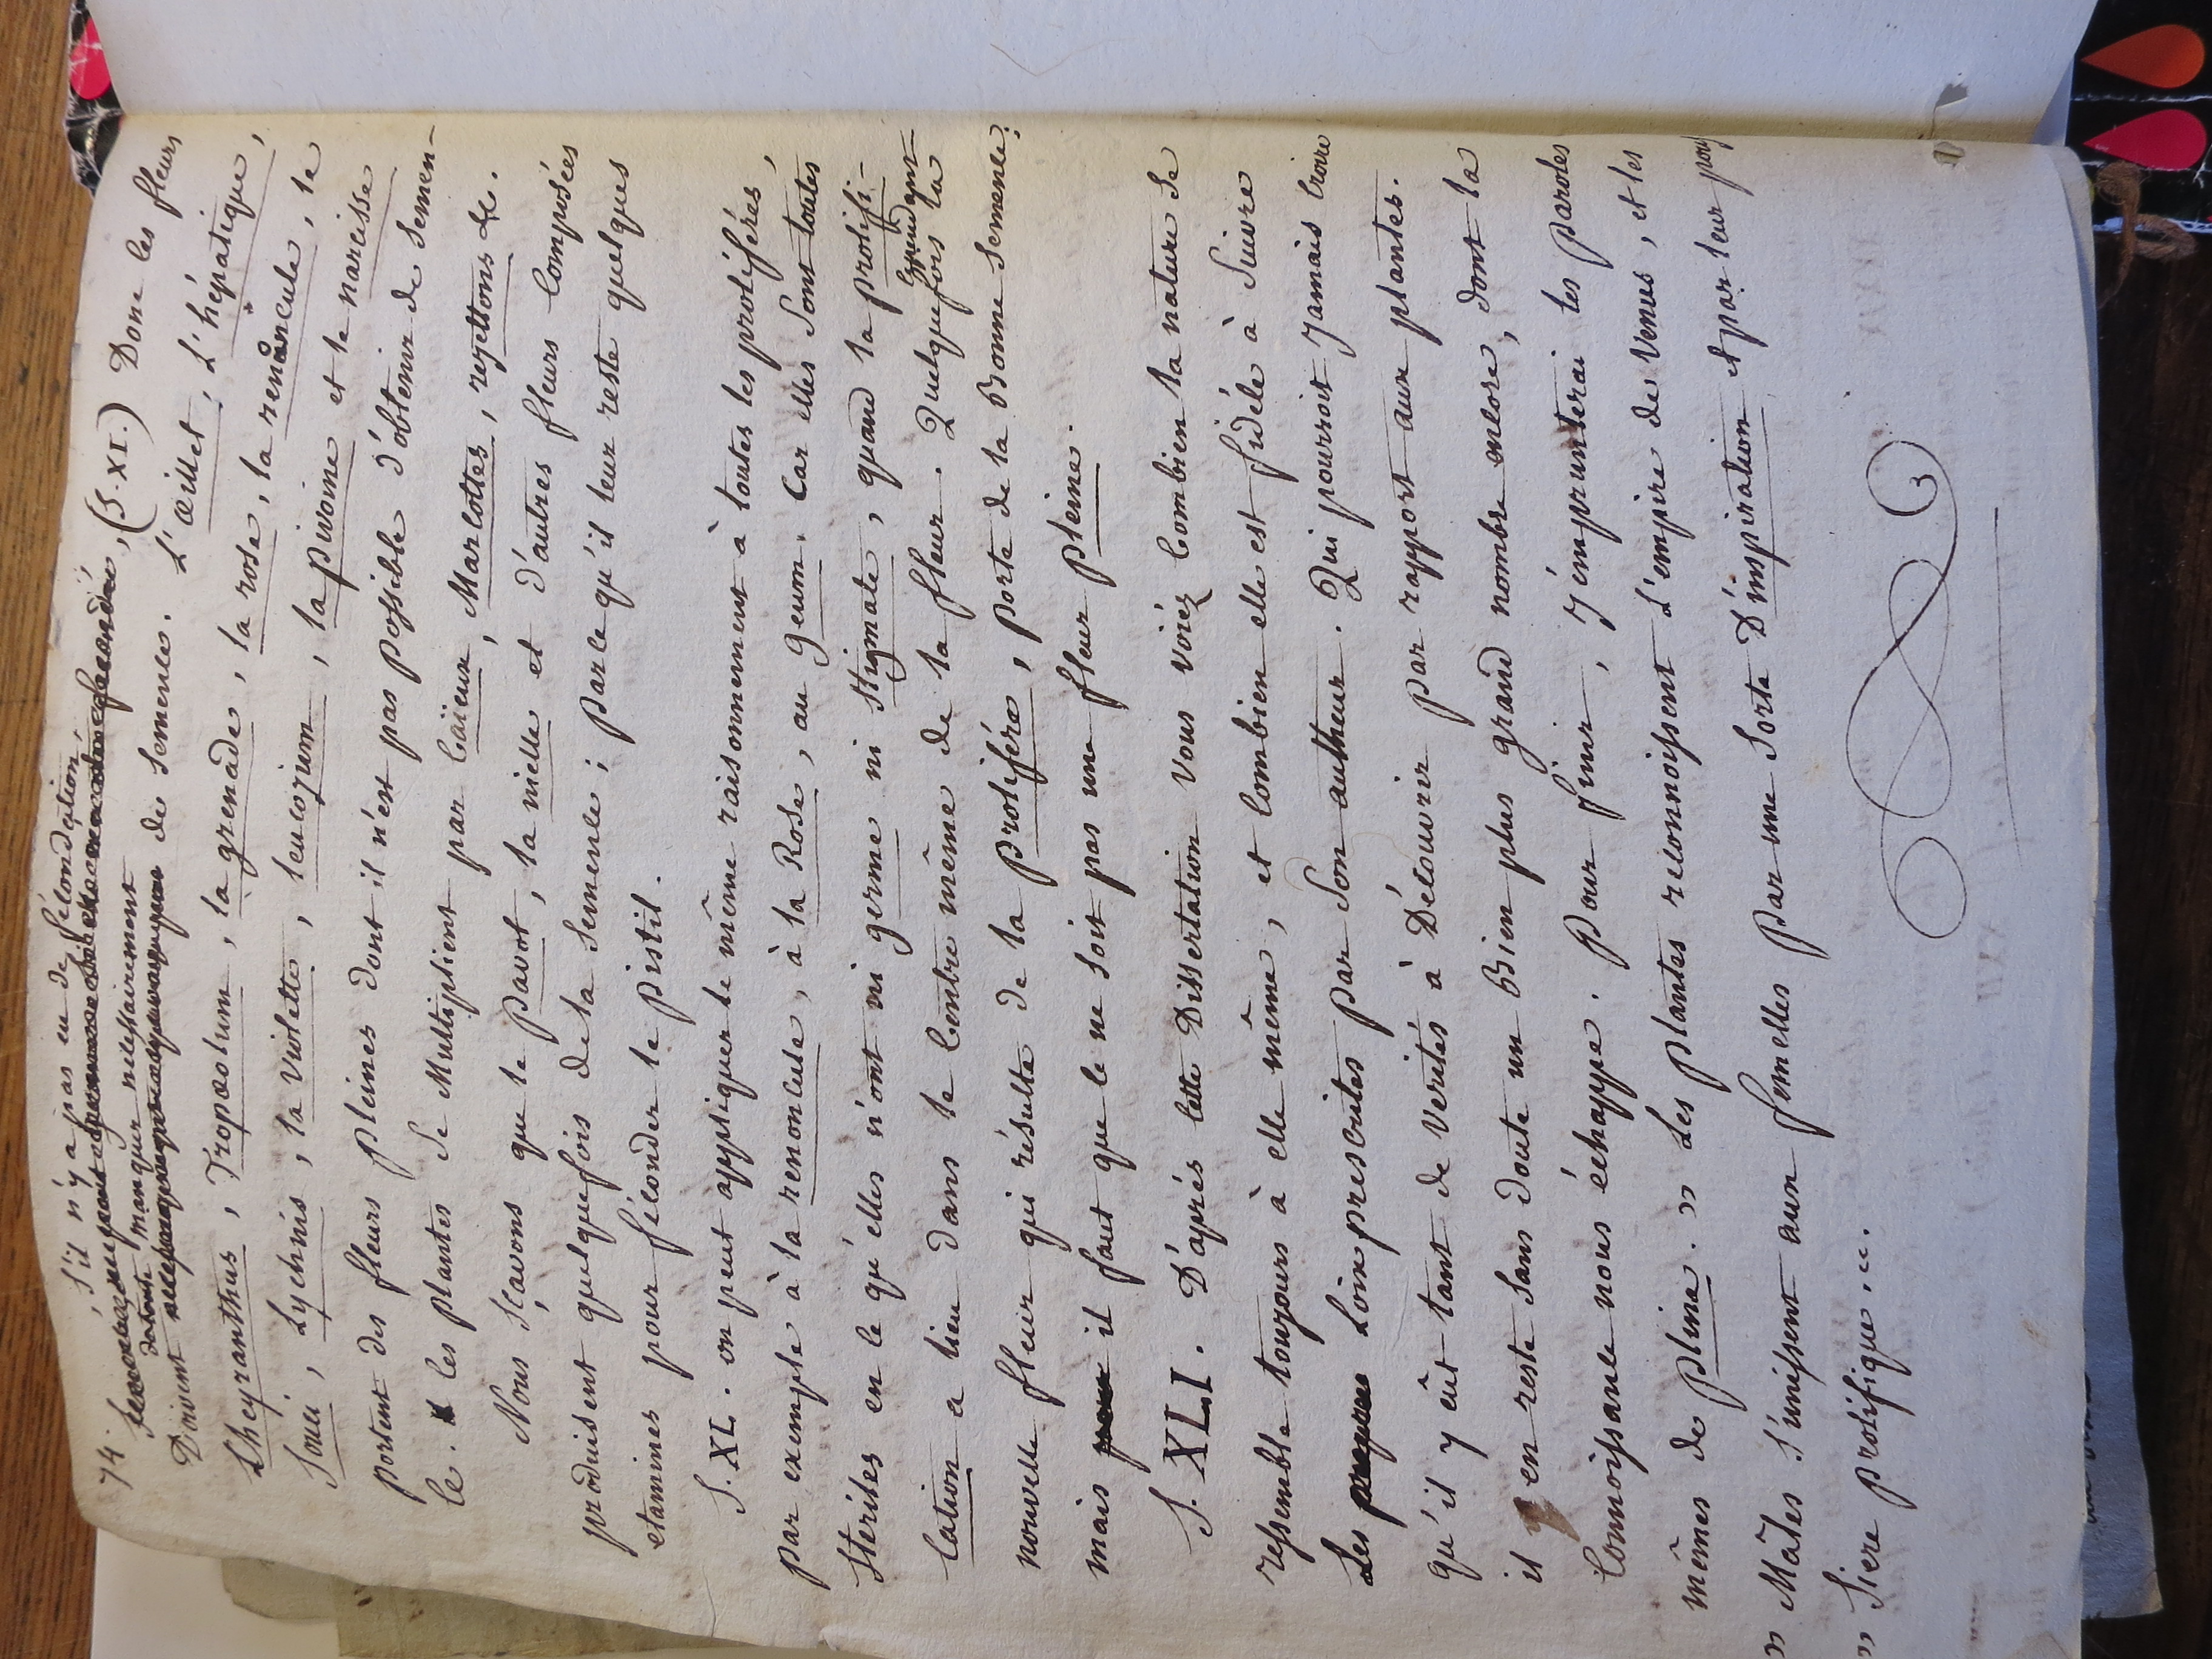 74. , s'il n'y a pas eu de fécondation,
fecondé, (§. XI.) Donc les fleurs
de toute manquer nécessairement
Doivent de semence. L'œillet, L'hépatique,
Cheyranthus, Tropæolum, la grenade, la rose, la renoncule, le
Souci, Lychnis, la violette, leucojum, la pivoine et le narcisse
portent des fleurs pleines dont il n'est pas possible d'obtenir de semen-
ce. les plantes se Multiplient par Caïeux, Marcottes, rejettons &c.
Nous sçavons que le pavot, la nielle et d'autres fleurs composées
produisent quelquefois de la semence; parce qu'il leur reste quelques
etamines pour féconder le pistil.
§. XL. on peut appliquer le même raisonnement à toutes les proliferes,
par exemple à la renoncule, à la Rose, au geum. Car elles sont toutes
stériles en ce qu'elles n'ont ni germe ni stigmate, quand la prolifi-
cation a lieu dans le centre même de la fleur. Quelquefois cependant la
nouvelle fleur qui résulte de la prolifére, porte de la Bonne semence:
mais il faut que ce ne soit pas une fleur pleine.
§. XLI. D'après cette Dissertation vous voiez combien la nature se
ressemble toujours à elle même, et combien elle est fidéle à suivre
Les Loix prescrites par son autheur. Qui pourroit jamais croire
qu'il y eût tant de verités à Découvrir par rapport aux plantes.
il en reste sans doute un Bien plus grand nombre encore, dont la
connoissance nous échappe. Pour finir, j'emprunterai les paroles
mêmes de pline. » Les plantes reconnoissent l'empire de Venus, et les
» Mâles s'unissent aux femelles par une sorte D'inspiration et par leur pous
» siere prolifique .&c.